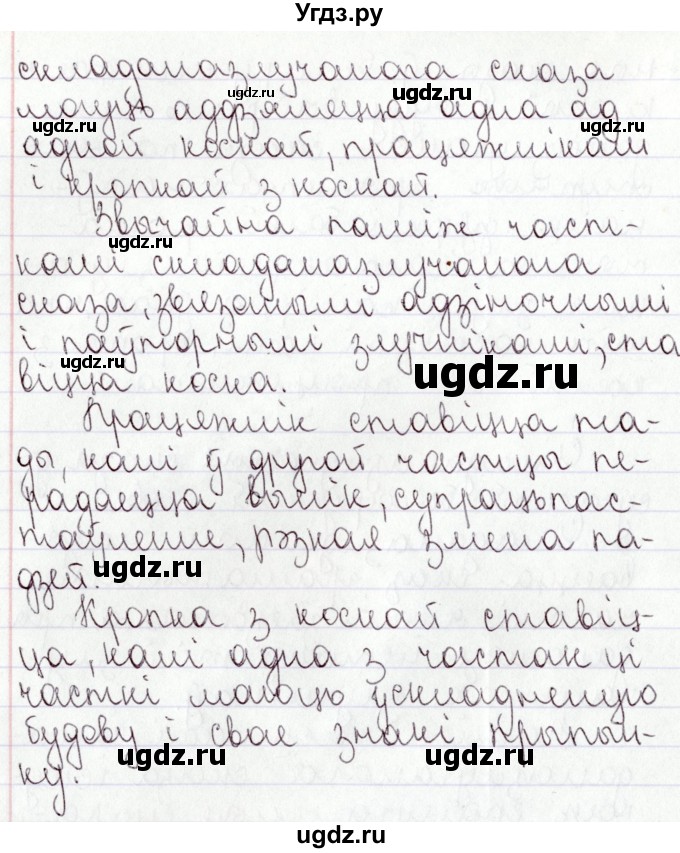 Угдз.ру
складаназлучанога сказа
могуць аддзяляцца адна ад
адной коскай, працяжнікам
і кропкай з коскай.
Звычайна паміж част-
камі складаназлучанога
сказа, звязанымі адзіночнымі
і паўторнымі злучнікамі, ста
віцца коска.
Працяжнік ставіцца та-
ды, калі ў другой частцы пе-
радаецца вынік, супрацьпас-
таўленне, рэзкая змена па-
дзей.
Кропка з коскай ставіц-
ца, калі адна з частак ці
часткі маюць ускладненую
будову і свае знакі прыпын-
ку.
ugdz.ru
ugdz.ru
ugdz.ru
ugdz.ru
ugdz.ru
ugdz.ru
ugdz.ru
ugdz.ru
ugdz.ru
ugdz.ru
ugdz.ru
ugdz.ru
ugdz.ru